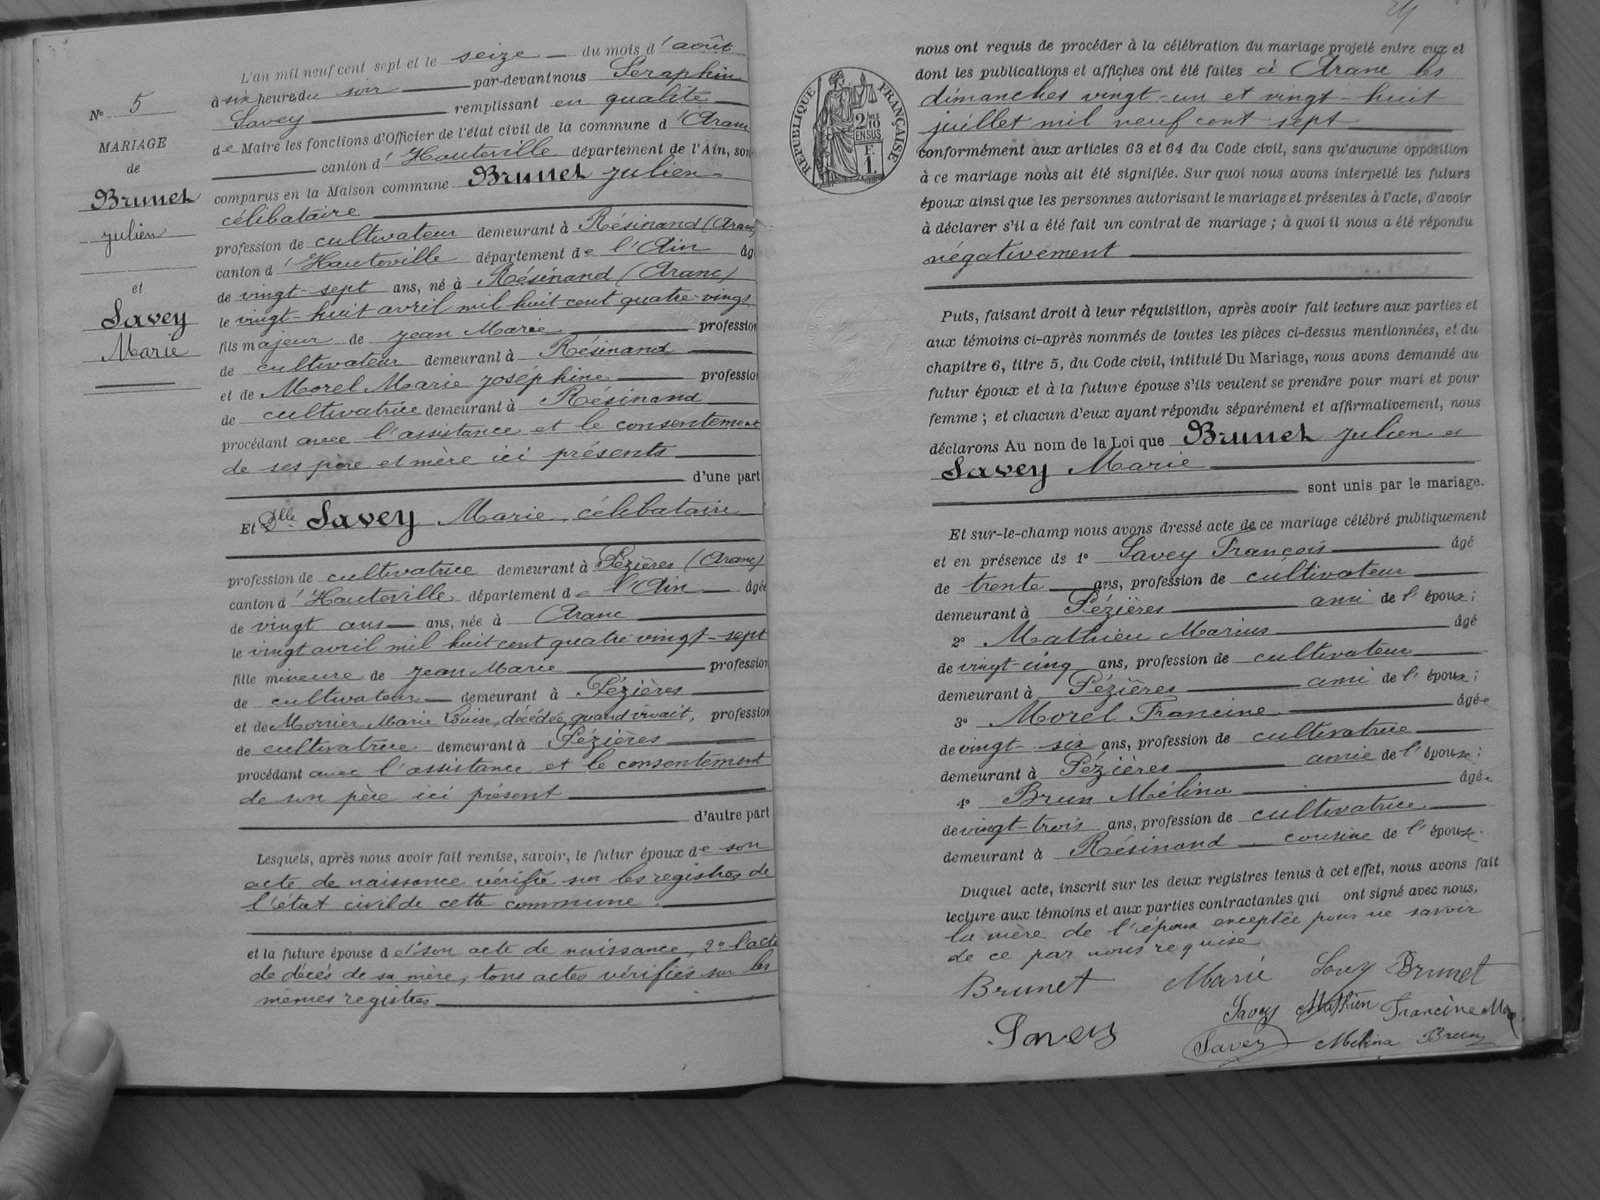 N° 5
MARIAGE
de
Brunet
Julien
et
Savey
Marie
L'an mil neuf cent sept et le seize du mois d'août
à six heures du soir par-devant nous Séraphin
Savey remplissant en qualité
de Maire les fonctions d'Officier de l'état civil de la commune d'Aranc
canton d'Hauteville département de l'Ain, sont
comparus en la Maison commune Brunet Julien
célibataire
profession de cultivateur demeurant à Résinand (Aranc)
canton d'Hauteville département de l'Ain âgé
de vingt-sept ans, né à Résinand (Aranc)
le vingt-huit avril mil huit cent quatre-vingt
fils majeur de Jean Marie profession
de cultivateur demeurant à Résinand
et de Morel Marie Joséphine profession
de cultivatrice demeurant à Résinand
procédant avec l'assistance et le consentement
de ses père et mère ici présents
d'une part
Et Dlle Savey Marie, célibataire
profession de cultivatrice demeurant à Pézières (Aranc)
canton d'Hauteville département de l'Ain âgée
de vingt ans ans, née à Aranc
le vingt avril mil huit cent quatre vingt-sept
fille mineure de Jean Marie profession
de cultivateur demeurant à Pézières
et de Monier Marie Louise, décédée, quand vivait, profession
de cultivatrice demeurant à Pézières
procédant avec l'assistance et le consentement
de son père ici présent
d'autre part
Lesquels, après nous avoir fait remise, savoir, le futur époux de son
acte de naissance vérifié sur les registres de
l'état civil de cette commune.
et la future épouse d e 1° son acte de naissance, 2° l'acte
de décès de sa mère, tous actes vérifiés sur les
mêmes registres
24
RÉPUBLIQUE FRANÇAISE
2/10
EN SUS
1 F.
nous ont requis de procéder à la célébration du mariage projeté entre eux et
dont les publications et affiches ont été faites à Aranc les
dimanches vingt-un et vingt-huit
juillet mil neuf cent sept
conformément aux articles 63 et 64 du Code civil, sans qu'aucune opposition
à ce mariage nous ait été signifiée. Sur quoi nous avons interpellé les futurs
époux ainsi que les personnes autorisant le mariage et présentes à l'acte, d'avoir
à déclarer s'il a été fait un contrat de mariage ; à quoi il nous a été répondu
négativement
Puis, faisant droit à leur réquisition, après avoir fait lecture aux parties et
aux témoins ci-après nommés de toutes les pièces ci-dessus mentionnées, et du
chapitre 6, titre 5, du Code civil, intitulé Du Mariage, nous avons demandé au
futur époux et à la future épouse s'ils veulent se prendre pour mari et pour
femme ; et chacun d'eux ayant répondu séparément et affirmativement, nous
déclarons Au nom de la Loi que Brunet Julien et
Savey Marie
sont unis par le mariage.
Et sur-le-champ nous avons dressé acte de ce mariage célébré publiquement
et en présence de 1° Savey François âgé
de trente ans, profession de cultivateur
demeurant à Pézières ami de l'époux ;
2° Mathieu Marius âgé
de vingt-cinq ans, profession de cultivateur
demeurant à Pézières ami de l'époux ;
3° Morel Francine âgée
de vingt-six ans, profession de cultivatrice
demeurant à Pézières amie de l'épouse ;
4° Brun Mélina âgée
de vingt-trois ans, profession de cultivatrice
demeurant à Résinand cousine de l'épouse.
Duquel acte, inscrit sur les deux registres tenus à cet effet, nous avons fait
lecture aux témoins et aux parties contractantes qui ont signé avec nous.
la mère de l'époux exceptée pour ne savoir
de ce par nous requise
Brunet Marie Savey Brunet
Savey Mathieu Francine Morel
Savey Savey Mélina Brun